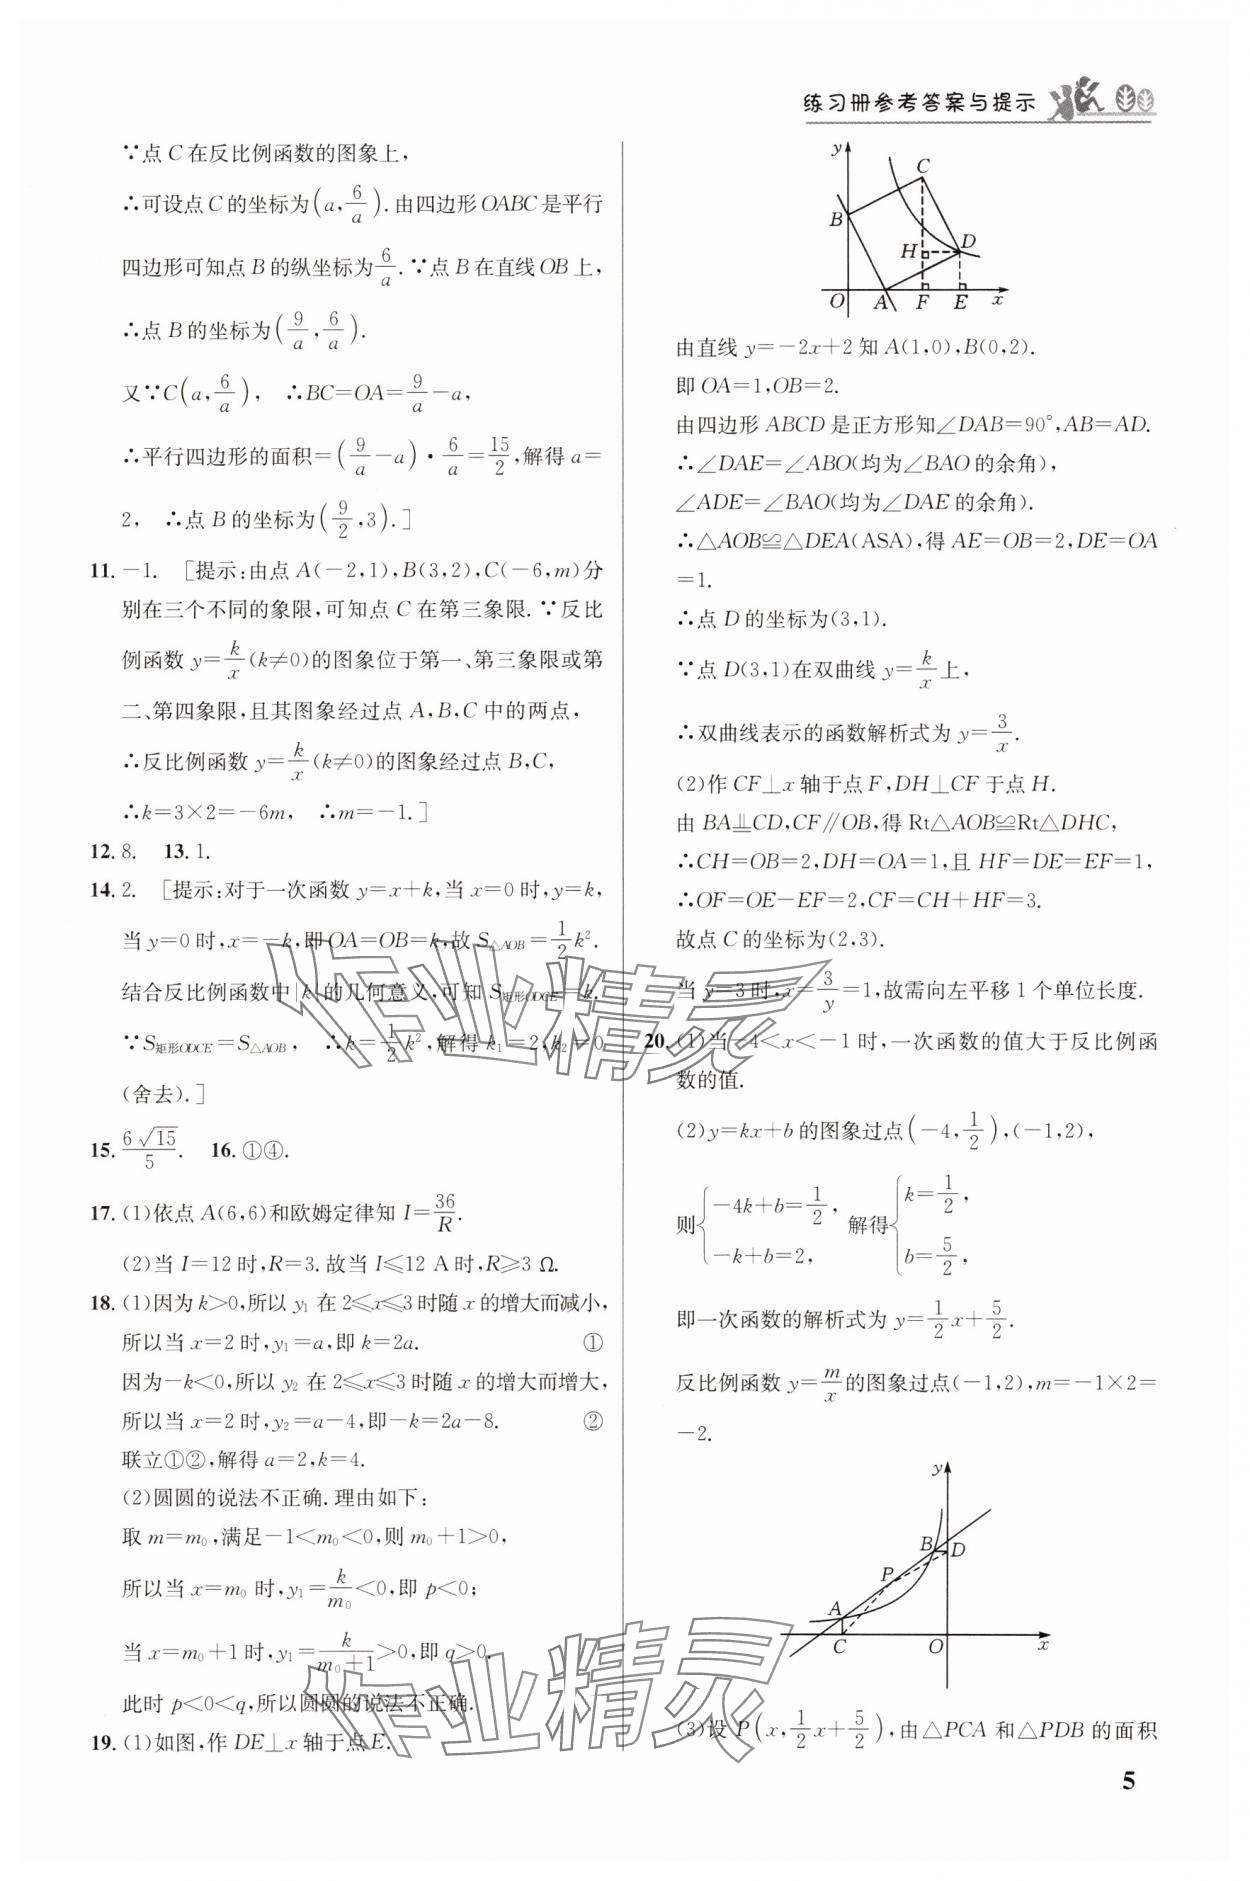 练习册参考答案与提示
∵点 C 在反比例函数的图象上,
∴可设点 C 的坐标为(a, 6/a). 由四边形 OABC 是平行
四边形可知点 B 的纵坐标为 6/a. ∵点 B 在直线 OB 上,
∴点 B 的坐标为(9/a, 6/a).
又∵C(a, 6/a), ∴BC=OA=9/a-a,
∴平行四边形的面积=(9/a-a)·6/a=15/2,解得 a=
2, ∴点 B 的坐标为(9/2,3).]
11. -1. [提示:由点 A(-2,1),B(3,2),C(-6,m)分
别在三个不同的象限,可知点 C 在第三象限. ∵反比
例函数 y=k/x(k≠0)的图象位于第一、第三象限或第
二、第四象限,且其图象经过点 A,B,C 中的两点,
∴反比例函数 y=k/x(k≠0)的图象经过点 B,C,
∴k=3×2=-6m, ∴m=-1.]
12. 8. 13. 1.
14. 2. [提示:对于一次函数 y=x+k,当 x=0 时,y=k,
当 y=0 时,x=-k,即 OA=OB=k,故 S△AOB=1/2k².
结合反比例函数中|k|的几何意义,可知 S矩形ODCE=k.
∵S矩形ODCE=S△AOB, ∴k=1/2k²,解得 k₁=2,k₂=0
(舍去).]
15. 6√15/5. 16. ①④.
17. (1)依点 A(6,6)和欧姆定律知 I=36/R.
(2)当 I=12 时,R=3. 故当 I≤12 A时,R≥3 Ω.
18. (1)因为 k>0,所以 y₁ 在 2≤x≤3 时随 x 的增大而减小,
所以当 x=2 时,y₁=a,即 k=2a. ①
因为-k<0,所以 y₂ 在 2≤x≤3 时随 x 的增大而增大,
所以当 x=2 时,y₂=a-4,即-k=2a-8. ②
联立①②,解得 a=2,k=4.
(2)圆圆的说法不正确. 理由如下:
取 m=m₀,满足-1<m₀<0,则 m₀+1>0,
所以当 x=m₀ 时,y₁=k/m₀<0,即 p<0;
当 x=m₀+1 时,y₁=k/(m₀+1)>0,即 q>0.
此时 p<0<q,所以圆圆的说法不正确.
19. (1)如图,作 DE⊥x 轴于点 E.
y
C
B
H
D
O
A
F
E
x
由直线 y=-2x+2 知 A(1,0),B(0,2).
即 OA=1,OB=2.
由四边形 ABCD 是正方形知∠DAB=90°,AB=AD.
∴∠DAE=∠ABO(均为∠BAO 的余角),
∠ADE=∠BAO(均为∠DAE 的余角).
∴△AOB≌△DEA(ASA),得 AE=OB=2,DE=OA
=1.
∴点 D 的坐标为(3,1).
∵点 D(3,1)在双曲线 y=k/x 上,
∴双曲线表示的函数解析式为 y=3/x.
(2)作 CF⊥x 轴于点 F,DH⊥CF 于点 H.
由 BA⫫CD,CF∥OB,得 Rt△AOB≌Rt△DHC,
∴CH=OB=2,DH=OA=1,且 HF=DE=EF=1,
∴OF=OE-EF=2,CF=CH+HF=3.
故点 C 的坐标为(2,3).
当 y=3 时,x=3/y=1,故需向左平移 1 个单位长度.
20. (1)当-4<x<-1 时,一次函数的值大于反比例函
数的值.
(2)y=kx+b 的图象过点(-4,1/2),(-1,2),
则{-4k+b=1/2, -k+b=2, 解得{k=1/2, b=5/2,
即一次函数的解析式为 y=1/2x+5/2.
反比例函数 y=m/x 的图象过点(-1,2),m=-1×2=
-2.
y
B
D
P
A
C
O
x
(3)设 P(x, 1/2x+5/2),由△PCA 和△PDB 的面积
5
作业精灵
作业精灵